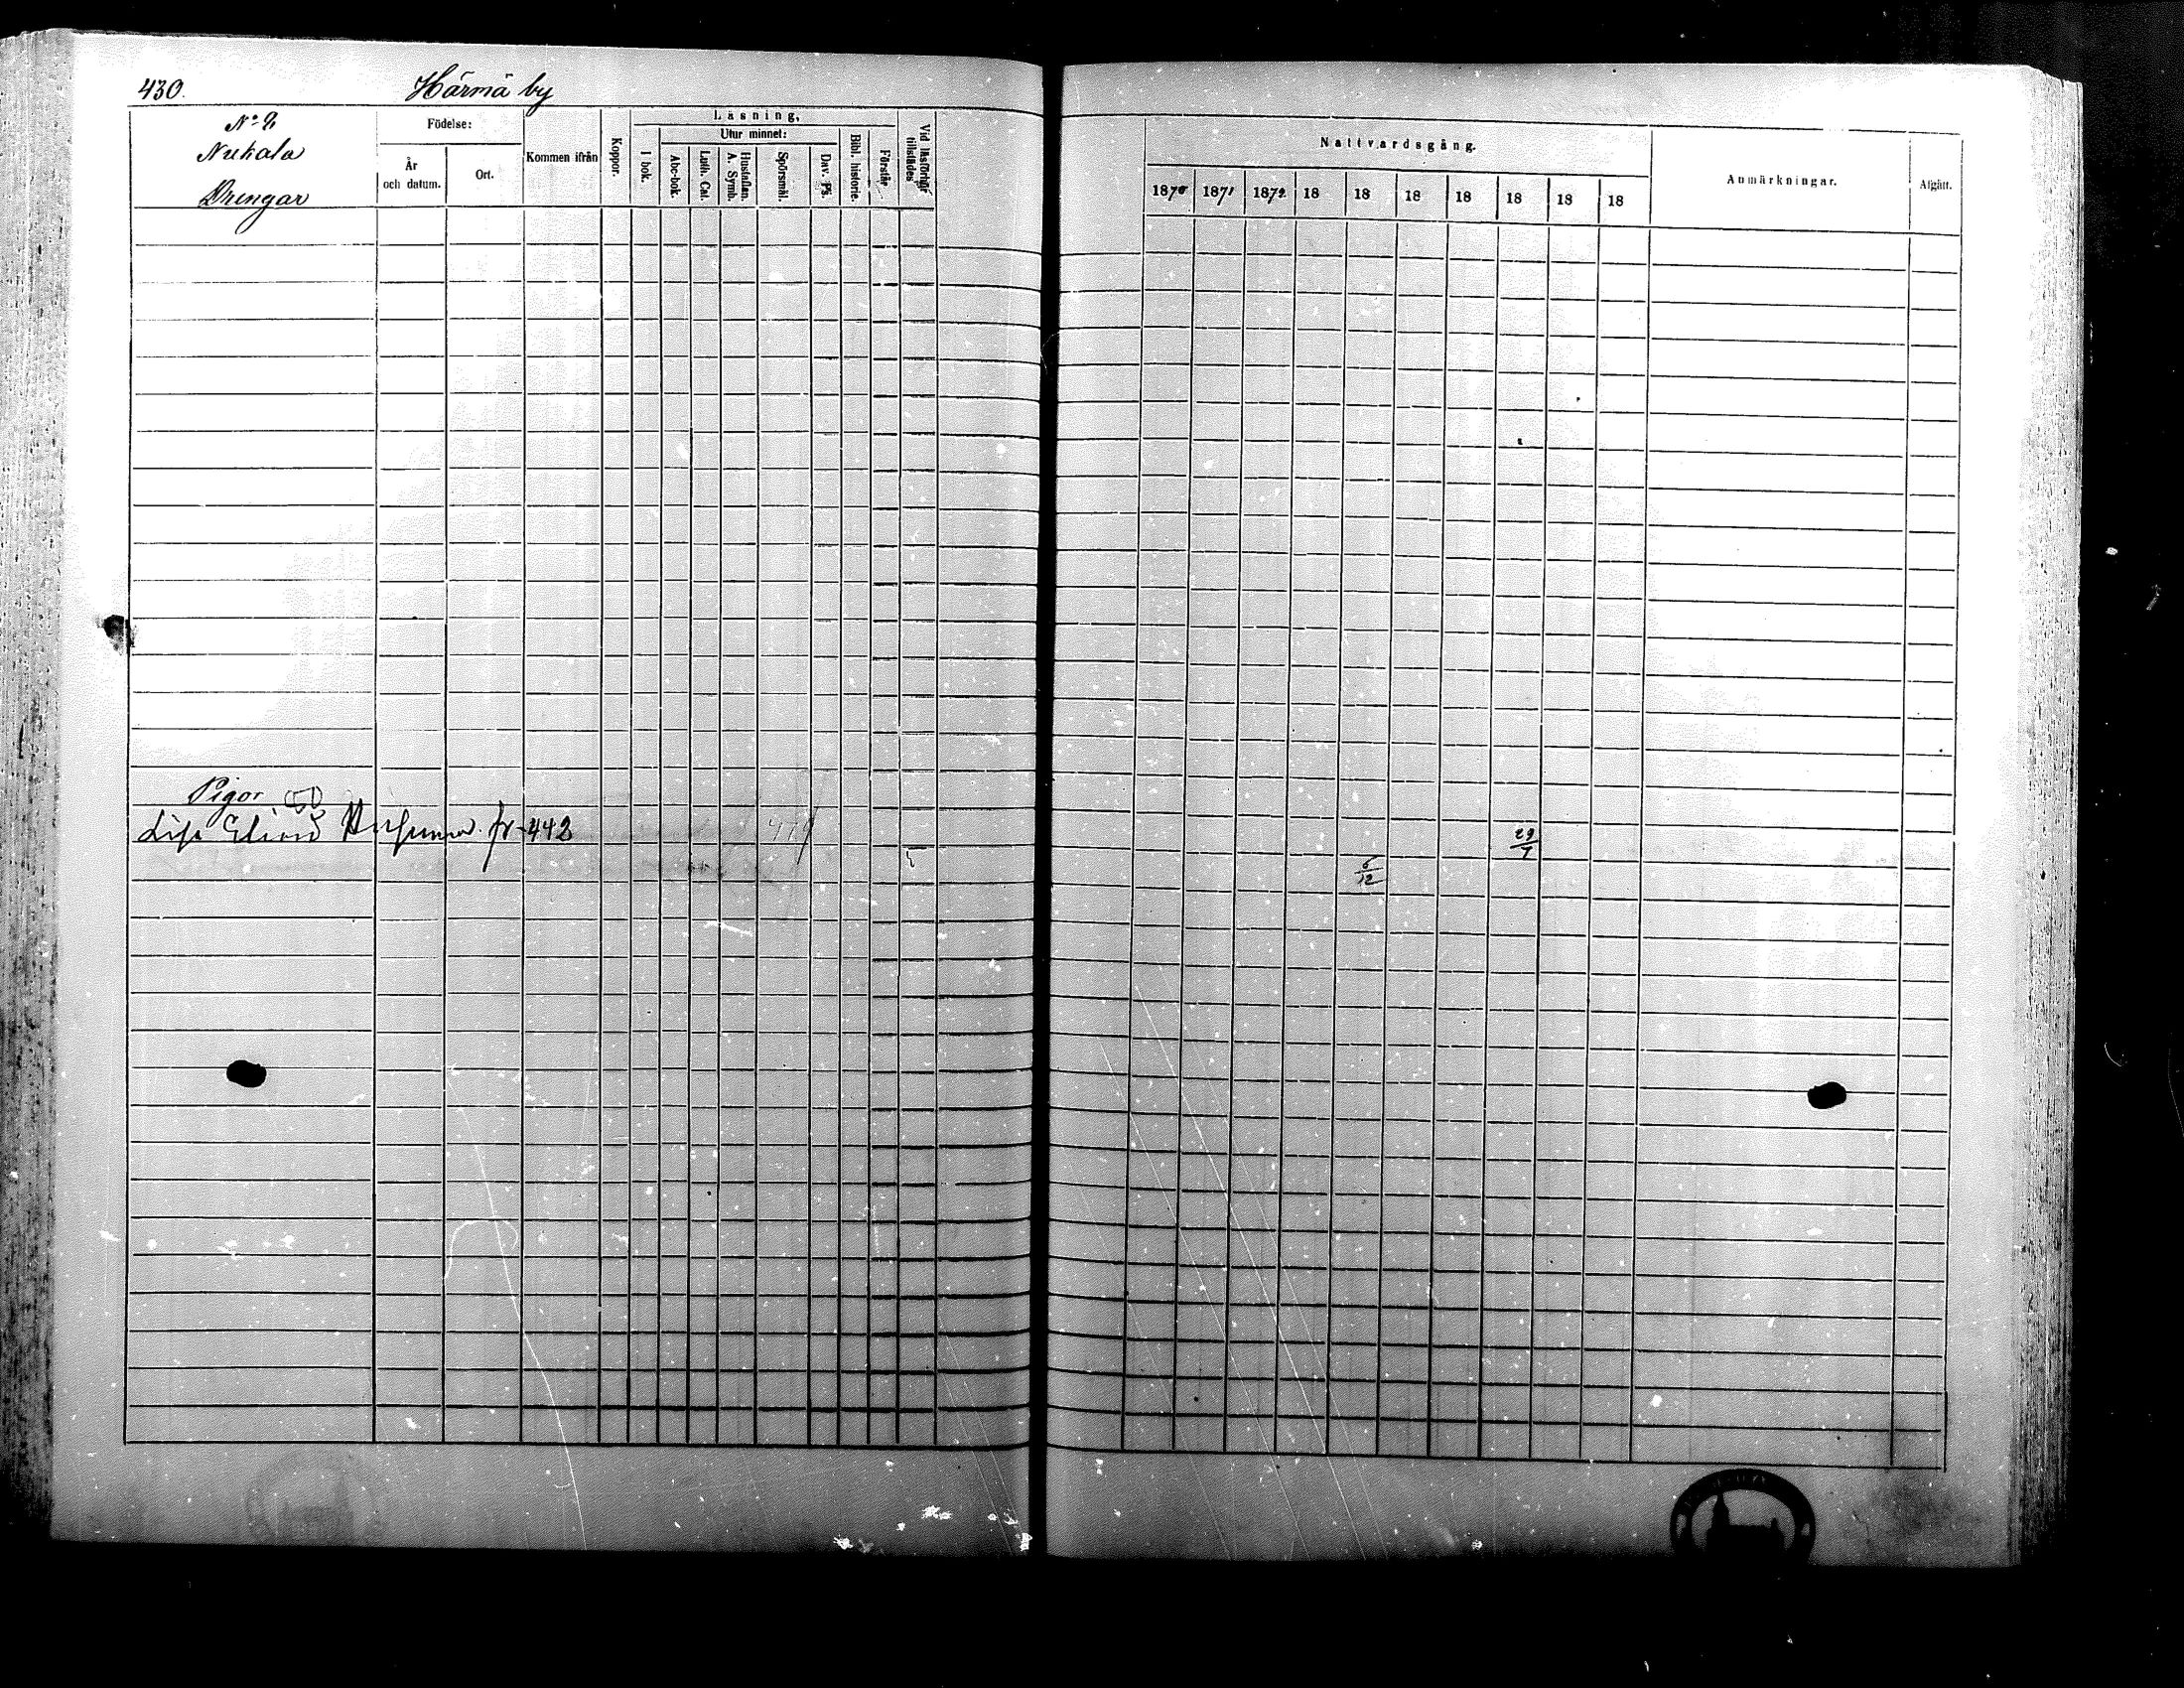 430. Härmä by
No 2,
Nukala
Drengar
Födelse:
År och datum.
Ort.
Kommen ifrån
Koppor.
Läsning,
I bok.
Utur minnet:
Abc-bok.
Luth. Cat.
Hustaflan. A. Symb.
Spörsmål.
Dav. Ps.
Bibl. historie.
Förstår
Vid läsförhör tillstädes
Nattvardsgång.
1870 1871 1872 18 18 18 18 18 18 18
Anmärkningar.
Afgått.
Pigor
Lisa fr. 442
29/7
6/12